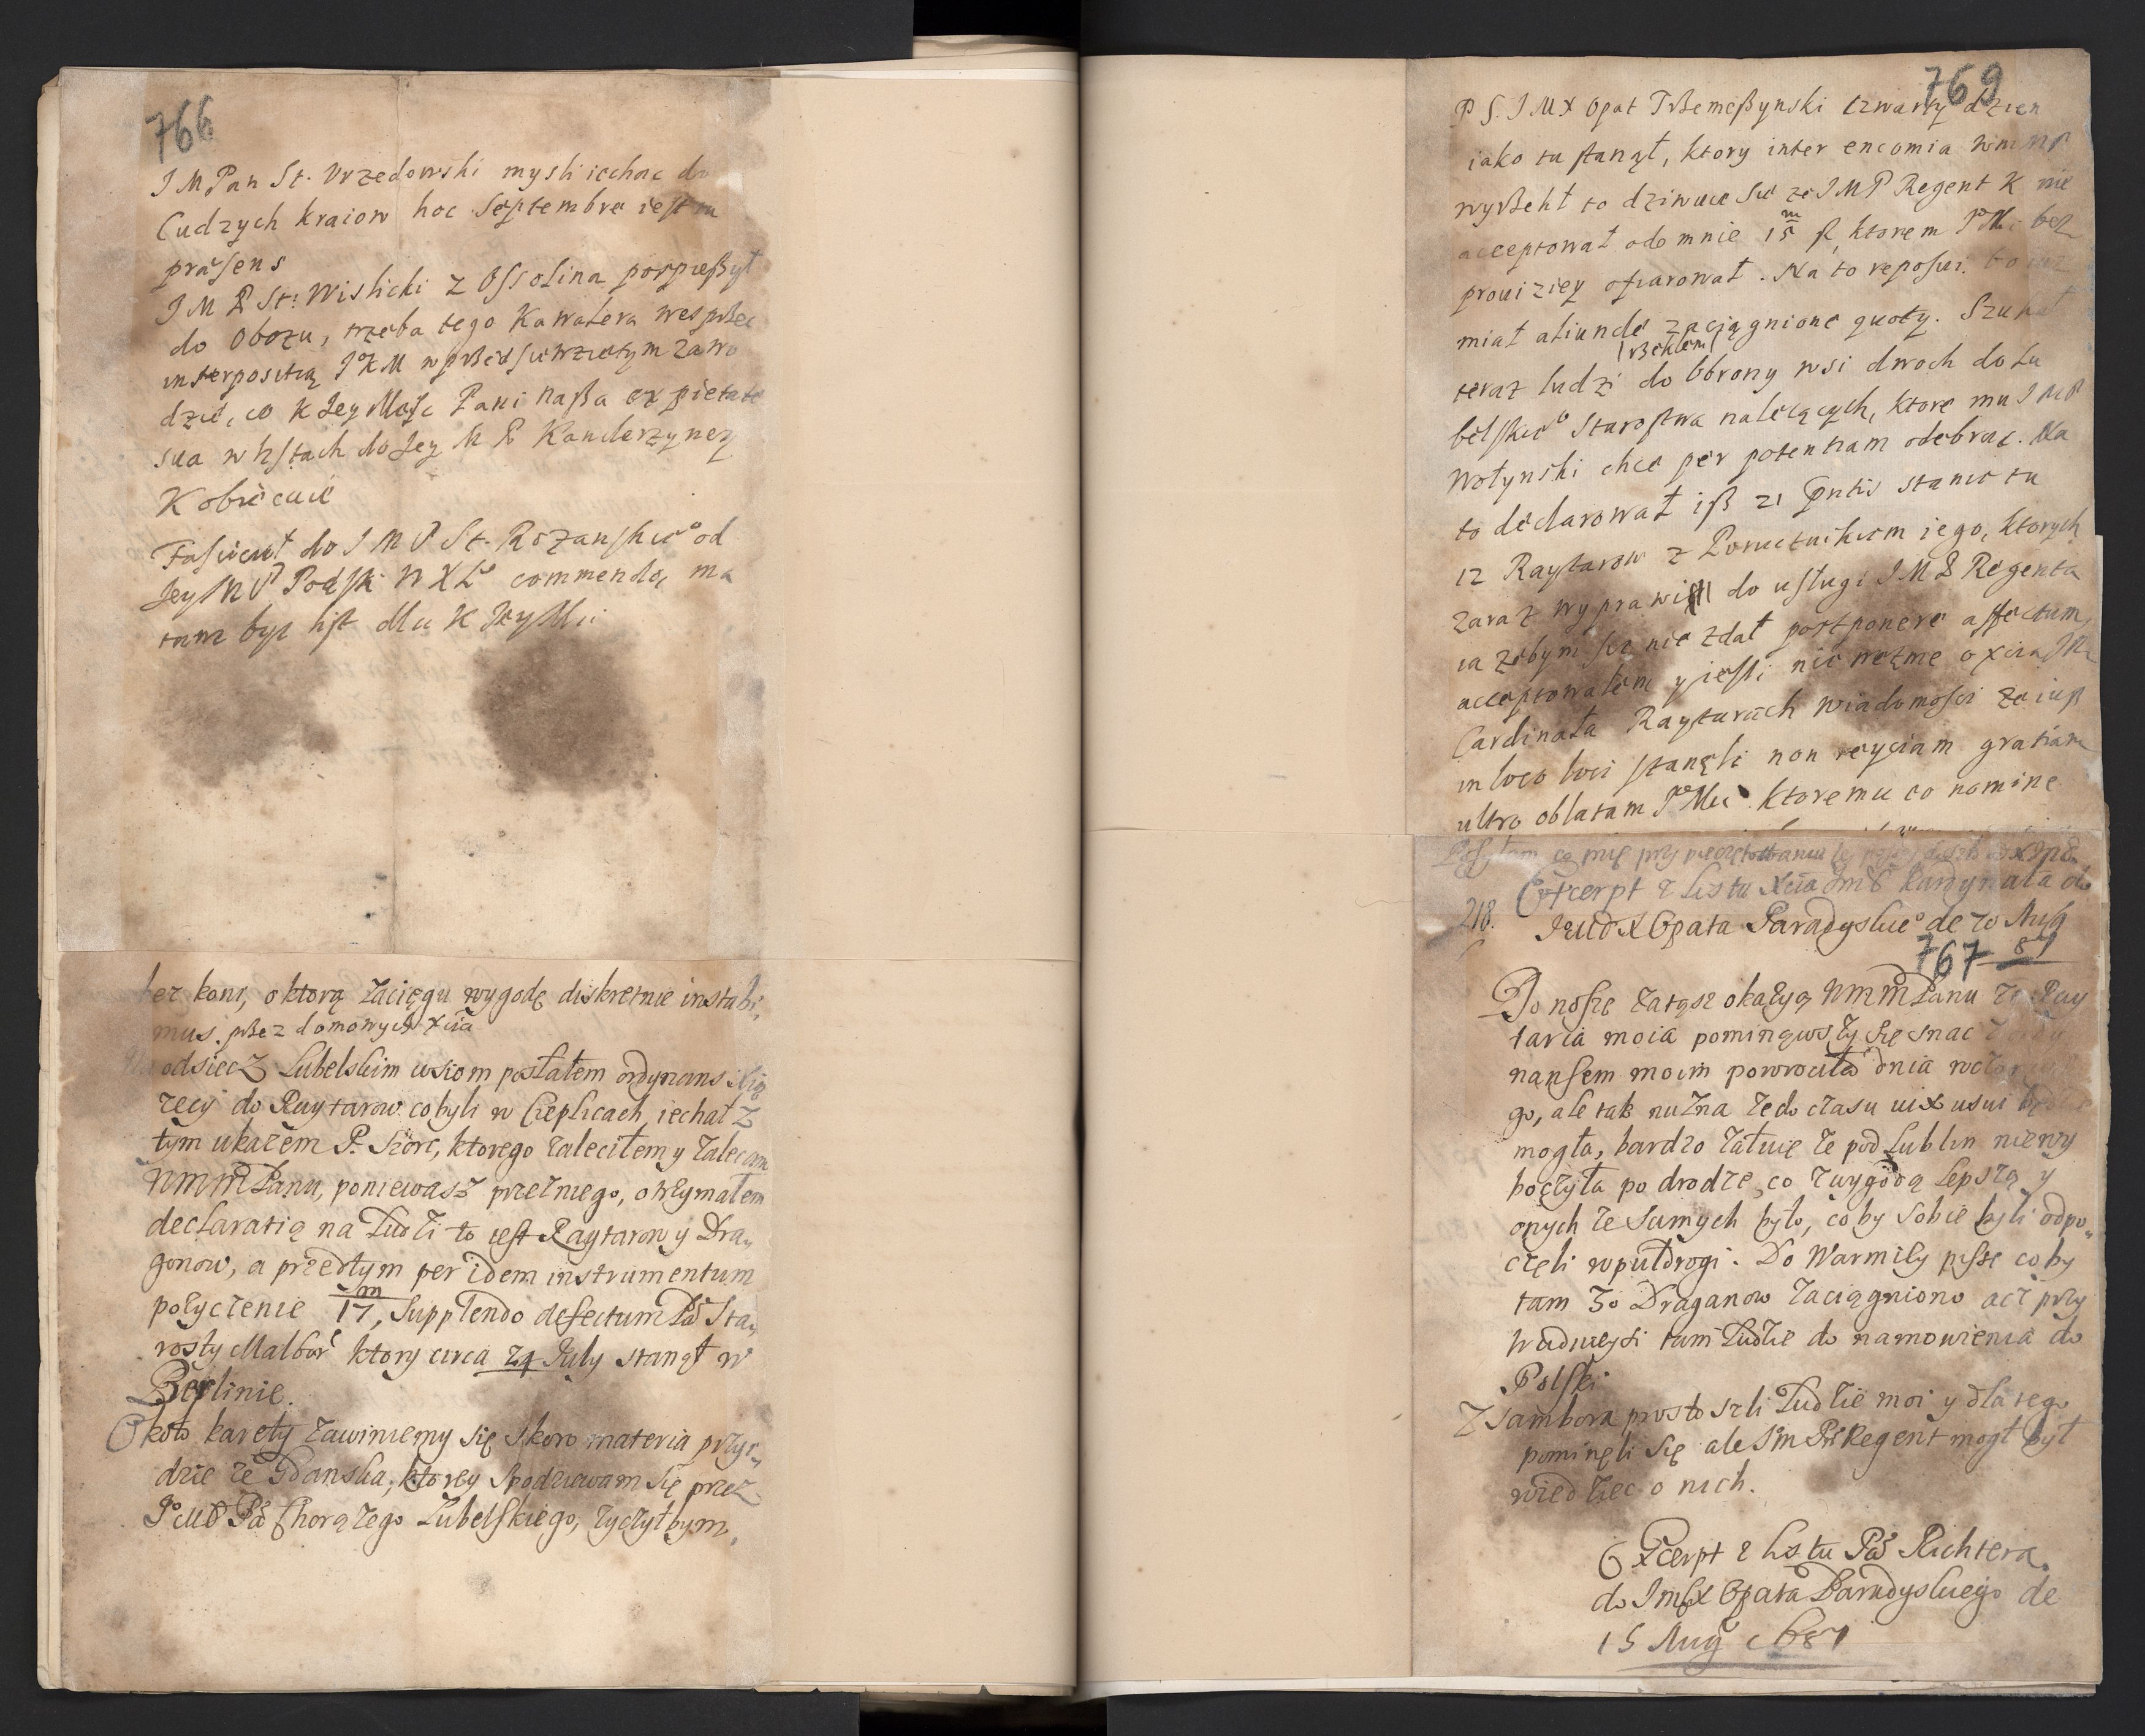 766
J M Pan St. Vrzedowski mysli iechac do
Cudzych kraiow hoc Septembre iest tu
præsens
J M P St: Wislicki z Ossolina pospießył
do Obozu, trzeba tego Kawalera wesprzec
interpositią JKM w przedsiewziętym zawo
dzie, co K Jey Mosc Pani naßa ex pietate
sua w listach do Jey M P Kanclerzyney
K obiecuie
Fascicul do J M P St. Rozanskieo od
Jey M P Podski W X Lo commendo, ma
tam byc list dla K Jey Mci
bez koni, o ktorą zacięgu wygodę diskretnie instabi„
mus. przez domowych Xcia
Na odsiecz Lubelskim wsiom posłałem ordynans Xią
zecy do Raytarow co byli w Cieplicach, iechał z
tym ukazem P. Storc, ktorego zaleciłem y zalecam
WMMPanu, poniewasz przez niego, otrzymałem
declaratią na Ludzi to iest Raytarow y Dra„
gonow, a przedtym per idem instrumentum
pozyczenie 17 m, Supplendo defectum Pa Sta„
rosty Malbor ktory circa 24 July stanął w
Berlinie.
Około karety zawiniemy się skoro materia przyi„
dzie ze Gdanska, ktorey spodziewam się przez
JeMP Pa Chorązego Lubelskiego, zyczyłbym,
769
P S. J M X Opat Trzemeßynski czwarty dzien
iako tu stanął, ktory inter encomia
wyrzekł to dziwuie sie ze J M P Regent K nie
acceptował ode mnie 15 m f, ktorem Jo Mci bez
prouiziey ofiarował. Na to reposui. bo iuz
miał aliunde zaciągnione quoty. Szukał
(rzekłem)
teraz ludzi do Obrony wsi dwoch do Lu
belskieo Starostwa nalezących, ktore mu J M P
Wołynski chce per potentiam odebrac. Na
to declarował iß 21 pntis stanie tu
12 Raytarow z Porucznikiem iego, ktorych
zaraz wyprawi do usługi J M P Regenta
ia zebym sie nie zdał postponere affectum,
acceptowałem y iesli nie wezme o Xcia JM
Cardinała Raytarach wiadomosci ze iuß
in loco loci stanęli non reyciam gratiam
ultro oblatam Jo Mci ktoremu eo nomine
218.
Excerpt z Listu Xcia JmP Kardynała do
JeMP X Opata Paradyskieo de 20 Aug
767 87
Donoszę zatąsz okazyą WMMPanu ze Ray
taria moia pominąwszy się snac z ordy
nansem moim powrociła dnia wczoraysze
go, ale tak nuzna ze do czasu vix usui bydz
mogła, bardzo załuię ze pod Lublin niewy
boczyła po drodze, co z wygodą Lepszą y
onych ze samych było, coby sobie byli odpo„
częli wpuł drogi. Do Warmiiy piszę coby
tam 30 Draganow zaciągniono acz przy
trudnieysi tam Ludzie do namowienia do
Polski
Z Sambora prosto szli Ludzie moi y dla tego
pominęli się ale Jm Pn Regent mogł był
wiedziec o nich.
Excerpt z Listu Pa Richtera
do Jmsx Opata Paradyskiego de
15 Aug 1687